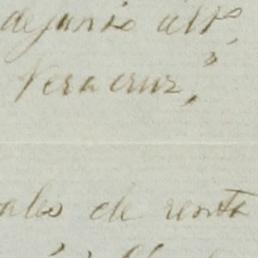 de junio ult.
Veracruz,
ales de renta